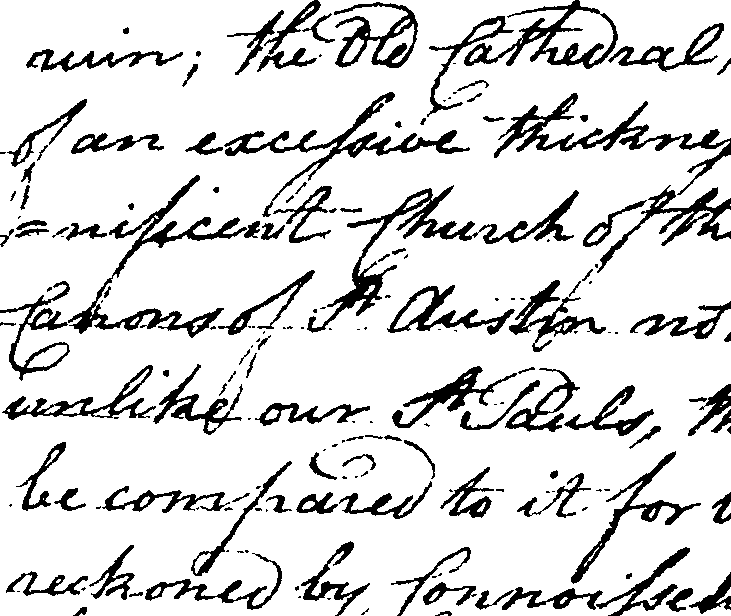 ruin; the Old Cathedral,
of an excessive thickness
=nificent Church of the
Canons of St Austin not
unlike our St Pauls, th
be compared to it for
reckoned by Connoisseu